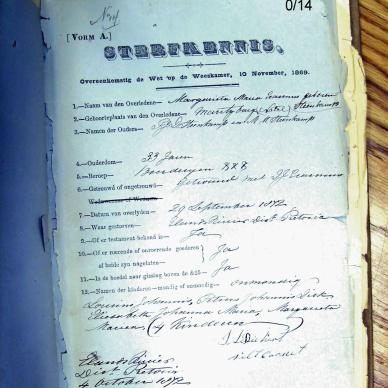 0/14
[VORM A.]
STERFKENNIS.
Overeenkomstig de Wet op de Weeskamer, 10 November, 1869.
1.—Naam van den Overledene— Margaretha Maria Erasmus geboren Steenkamp
2.—Geboorteplaats van den Overledene— Maritzburg (Natal)
3.—Namen der Ouders— Steenkamp en M. M. Steenkamp
4.—Ouderdom— 33 Jaren
5.—Beroep— Boerderyen
6.—Getrouwd of ongetrouwd— Getrouwd met Erasmus
Weduwenaar of Weduwe
7.—Datum van overlyden— 29 September 1872
8.—Waar gestorven— Elands Rivier Dist Pretoria
9.—Of er testament bekend is— Ja
10.—Of er roerende of onroerende goederen of beide zyn nagelaten— Ja
11.—Is de boedel naar gissing boven de £25— Ja
12.—Namen der kinderen—mondig of onmondig— onmondig
Johannis, Petrus Johannes Dirk
Elizabeth Johanna Maria, Margaretha
Maria (4 Kinderen)
Veld Cornet
Elands Rivier
Dist Pretoria
4 October 1872